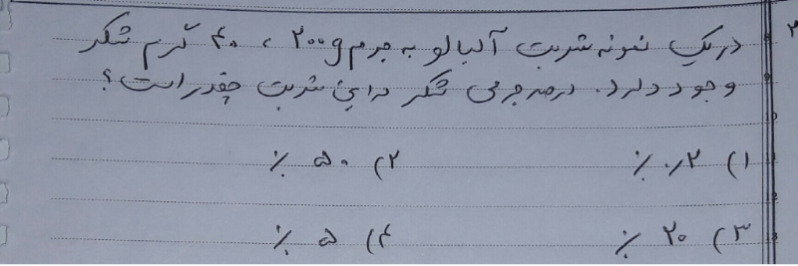 ۳
در یک نمونه شربت آلبالو به جرم ۲۰۰g ، ۴۰ گرم شکر
وجود دارد. درصد جرمی شکر در این شربت چقدر است؟
۱) ۰٫۲ ٪ ۲) ۵۰ ٪
۳) ۲۰ ٪ ۴) ۵ ٪